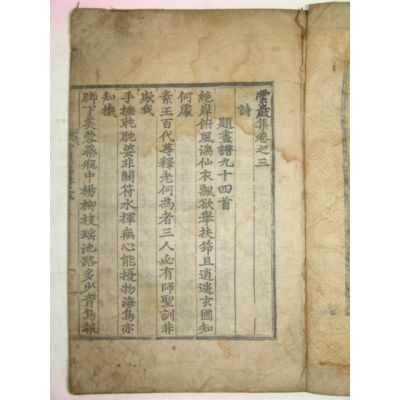 巖集卷之三
詩
題畫譜九十四首
絶岸俯風湍仙衣飄欲擧扶筇且逍遙玄圃知
何處
素王百代尊釋老何爲者三人必有師聖訓非
欺我
手撫耽耽姿非關符水揮無心能擾物海鳥亦
知機
脚下芙蓉藥瓶中楊柳枝瑶池路多少靑鳥報